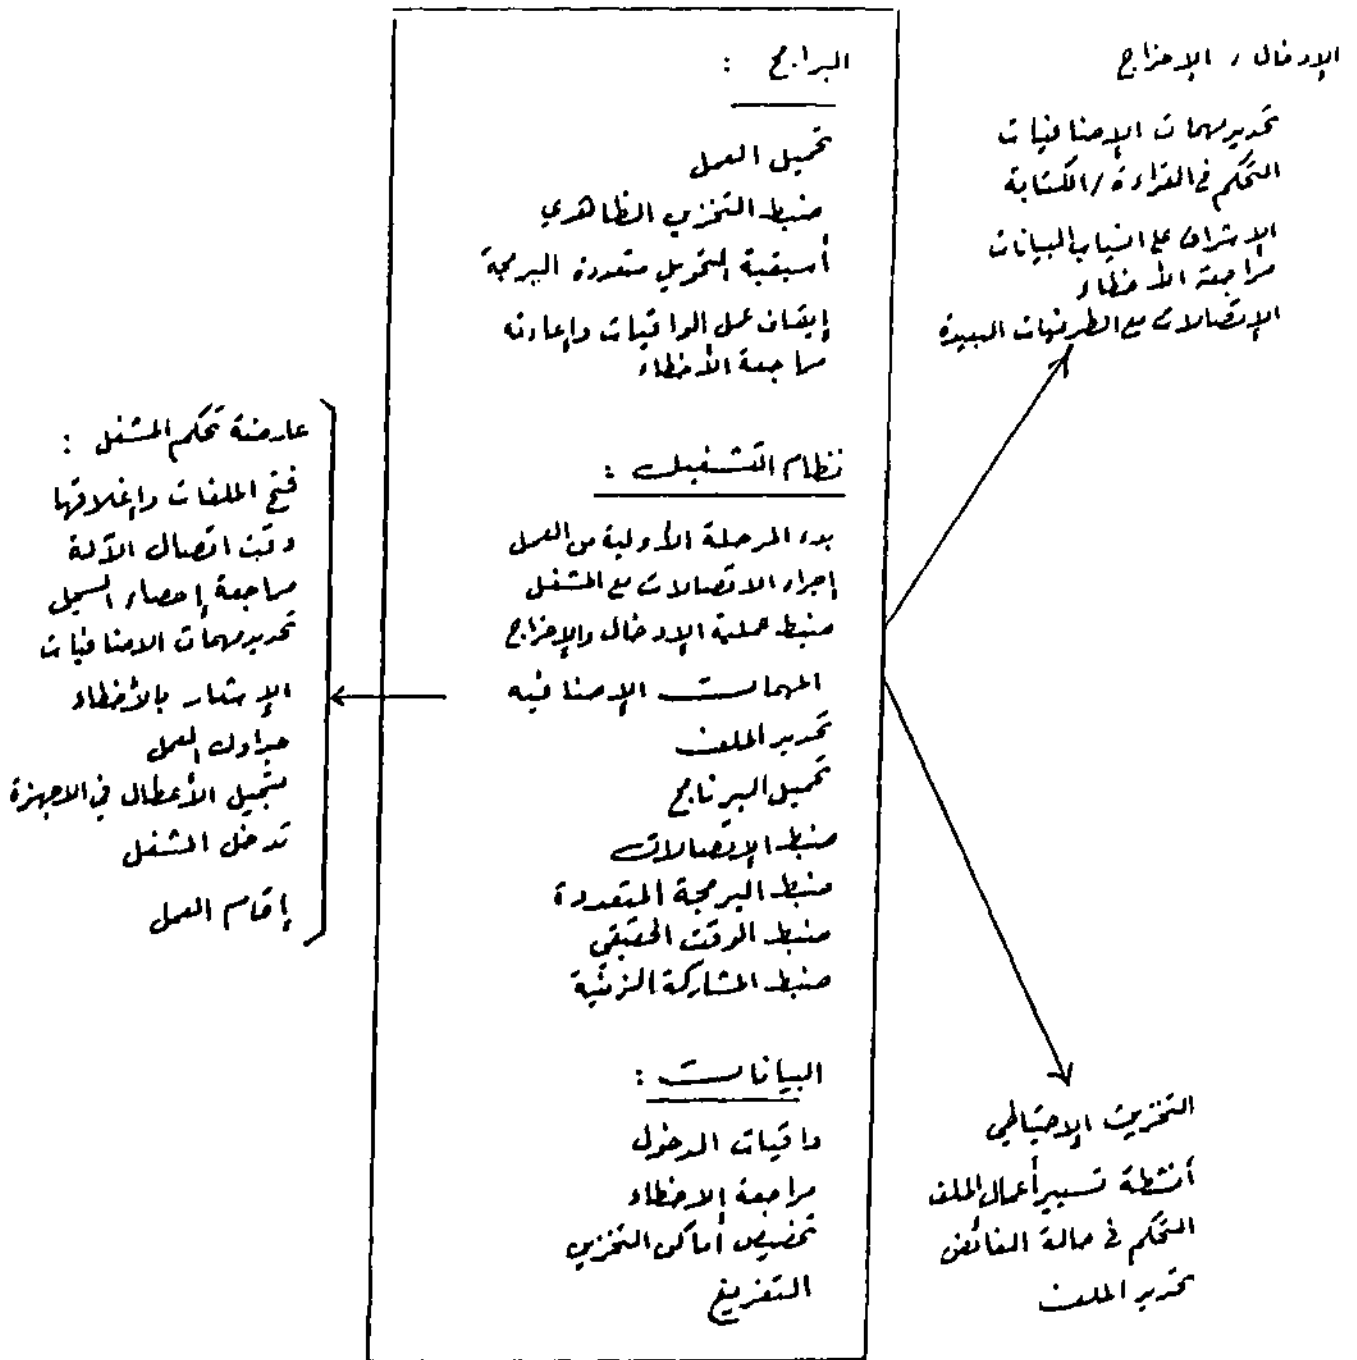 الإدخال / الإخراج
تحديد مهمات الإضافيات
التحكم في القراءة / الكتابة
الإشراف على انسياب البيانات
مراجعة الأخطاء
الإتصالات مع الطرفيات البعيدة
البرامج :
تحميل العمل
ضبط التخزين الظاهري
أسبقية التحويل متعددة البرمجة
إيقاف عمل الواقيات وإعادته
مراجعة الأخطاء
نظام التشغيل :
بدء المرحلة الأولية من العمل
إجراء الاتصالات مع المشغل
ضبط عملية الإدخال والإخراج
المهمات الإضافيه
تحديد الملف
تحميل البرنامج
ضبط الإتصالات
ضبط البرمجة المتعددة
ضبط الوقت الحقيقي
ضبط المشاركة الزمنية
البيانات :
واقيات الدخول
مراجعة الاخطاء
تخصيص أماكن التخزين
التفريغ
عارضة تحكم المشغل :
فتح الملفات وإغلاقها
وقت اتصال الآلة
مراجعة إحصاء السجل
تحديد مهمات الاضافيات
الإشعار بالأخطاء
جداول العمل
تسجيل الأعطال في الاجهزة
تدخل المشغل
إتمام العمل
التخزين الإحتياطي
أنشطة تسيير أعمال الملف
التحكم في حالة الفائض
تحديد الملف